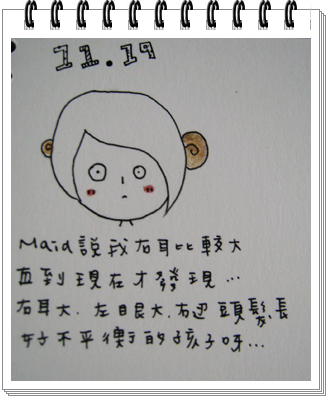 11.19
Maid說我右耳比較大
直到現在才發現...
右耳大.左眼大.右邊頭髮長
好不平衡的孩子呀...